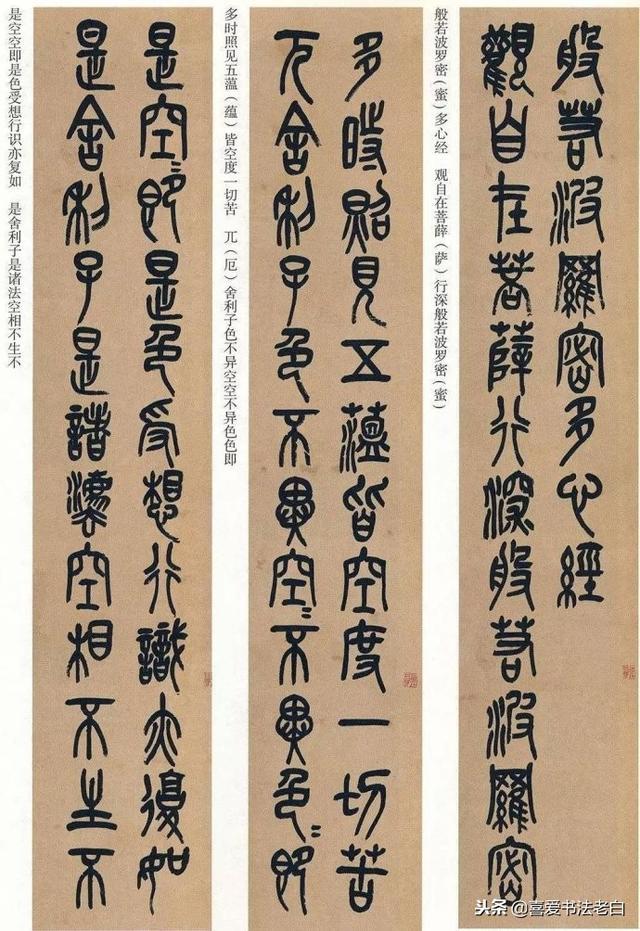 般若波羅密多心經
觀自在菩薛行深般若波羅密
般若波罗密（蜜）多心经　观自在菩薛（萨）行深般若波罗密（蜜）
多時照見五薀皆空度一切苦
兀舍利子色不異空〻不異色〻即
多时照见五薀（蕴）皆空度一切苦　兀（厄）舍利子色不异空空不异色色即
是空〻即是色受想行識亦復如
是舍利子是諸灋空相不生不
是空空即是色受想行识亦复如　是舍利子是诸法空相不生不
头条 @喜爱书法老白